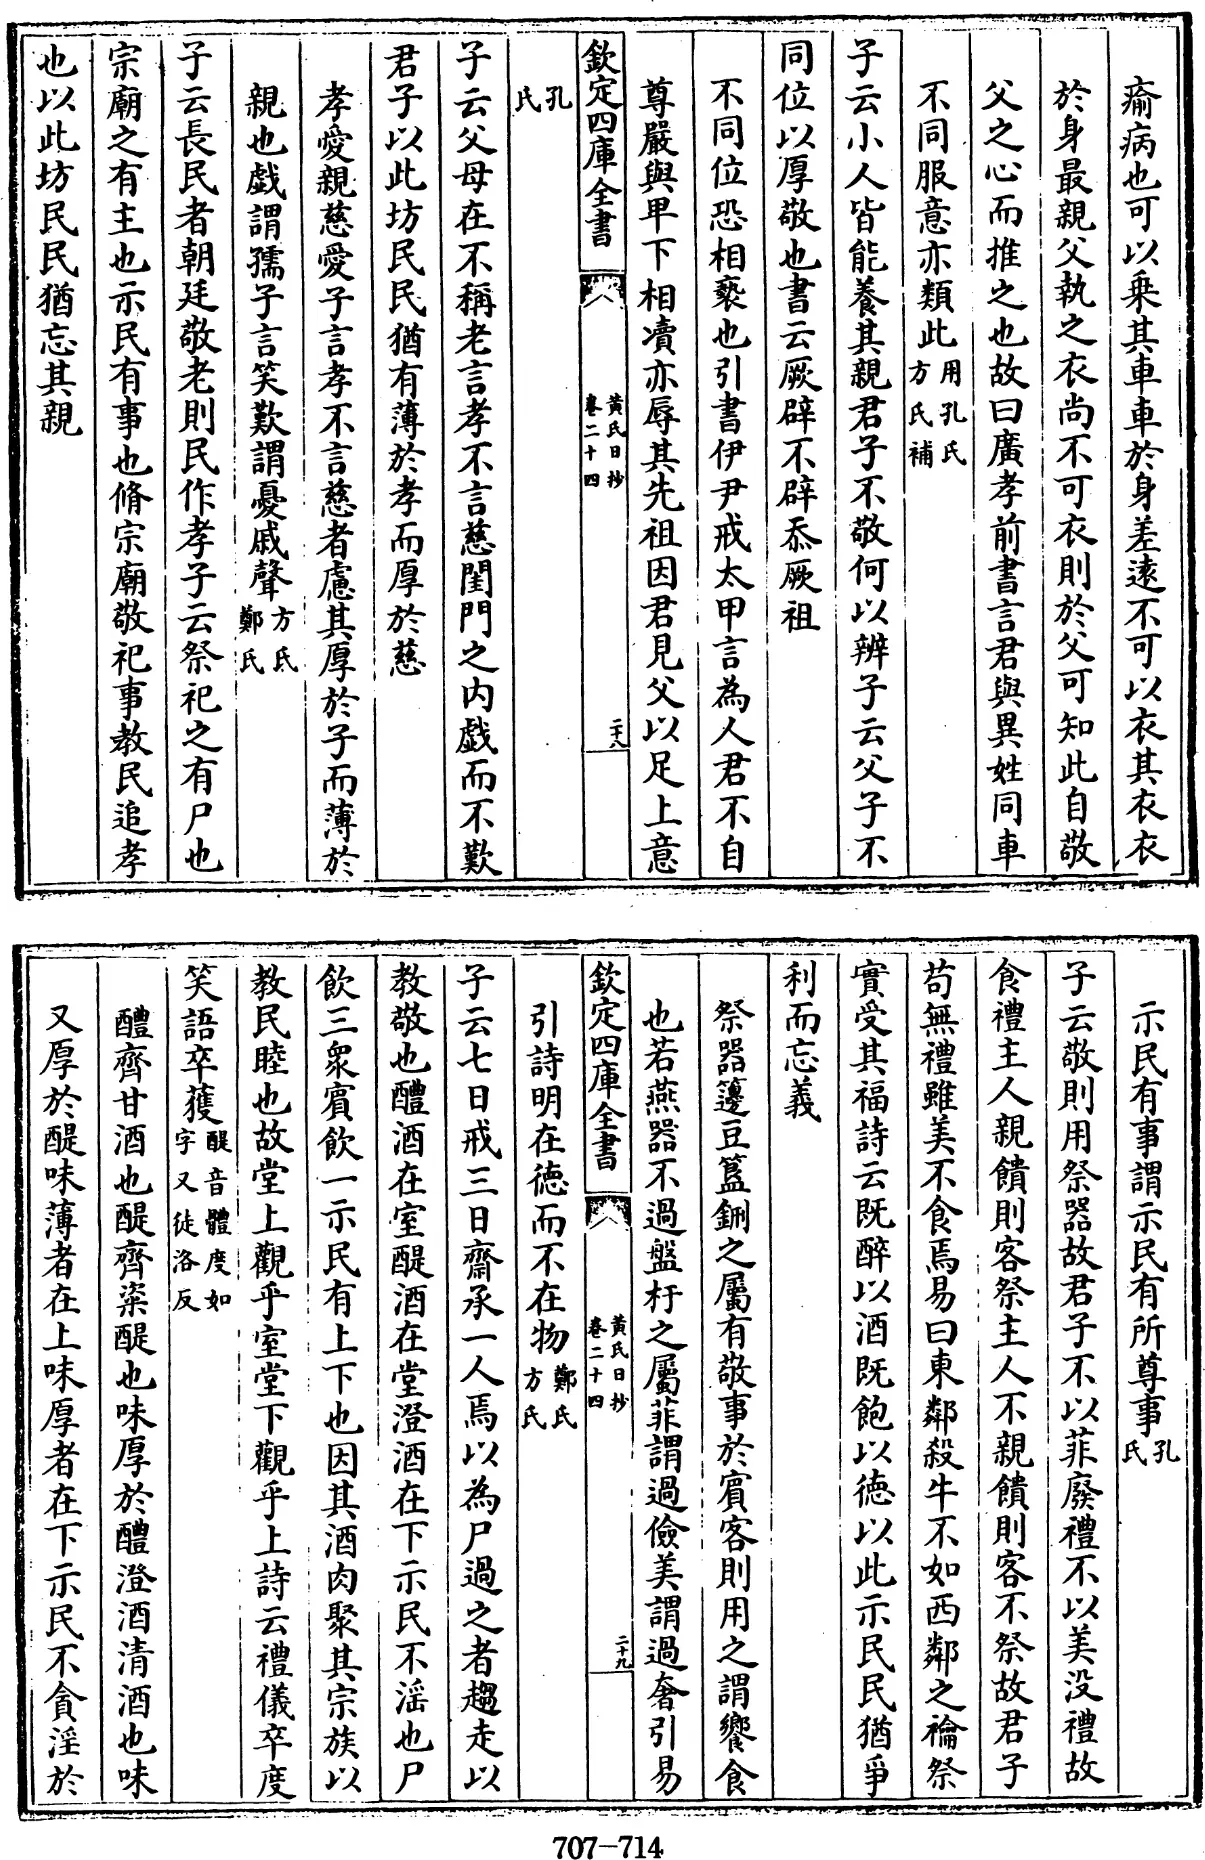 瘉病也可以乗其車車於身差逺不可以衣其衣衣
於身最親父執之衣尚不可衣則於父可知此自敬
父之心而推之也故曰廣孝前書言君與異姓同車
不同服意亦類此用孔氏方氏補
子云小人皆能養其親君子不敬何以辨子云父子不
同位以厚敬也書云厥辟不辟忝厥祖
不同位恐相褻也引書伊尹戒太甲言為人君不自
尊嚴與甲下相凟亦辱其先祖因君見父以足上意
欽定四庫全書
黄氏日抄
卷二十四
二十八
孔氏
子云父母在不稱老言孝不言慈閨門之内戲而不歎
君子以此坊民民猶有薄於孝而厚於慈
孝愛親慈愛子言孝不言慈者慮其厚於子而薄於
親也戲謂孺子言笑歎謂憂戚聲方氏鄭氏
子云長民者朝廷敬老則民作孝子云祭祀之有尸也
宗廟之有主也示民有事也脩宗廟敬祀事教民追孝
也以此坊民民猶忘其親
示民有事謂示民有所尊事孔氏
子云敬則用祭器故君子不以菲廢禮不以美没禮故
食禮主人親饋則客祭主人不親饋則客不祭故君子
苟無禮雖美不食焉易曰東鄰殺牛不如西鄰之禴祭
實受其福詩云既醉以酒既飽以徳以此示民民猶爭
利而忘義
祭器籩豆簋鉶之屬有敬事於賓客則用之謂饗食
也若燕器不過盤杅之屬菲謂過儉美謂過奢引易
欽定四庫全書
黄氏日抄
卷二十四
二十九
引詩明在徳而不在物鄭氏方氏
子云七日戒三日齋承一人焉以為尸過之者趨走以
教敬也醴酒在室醍酒在堂澄酒在下示民不滛也尸
飲三衆賓飲一示民有上下也因其酒肉聚其宗族以
教民睦也故堂上觀乎室堂下觀乎上詩云禮儀卒度
笑語卒獲醍音體度如字又徒洛反
醴齊甘酒也醍齊粢醍也味厚於醴澄酒清酒也味
又厚於醍味薄者在上味厚者在下示民不貪淫於
707-714